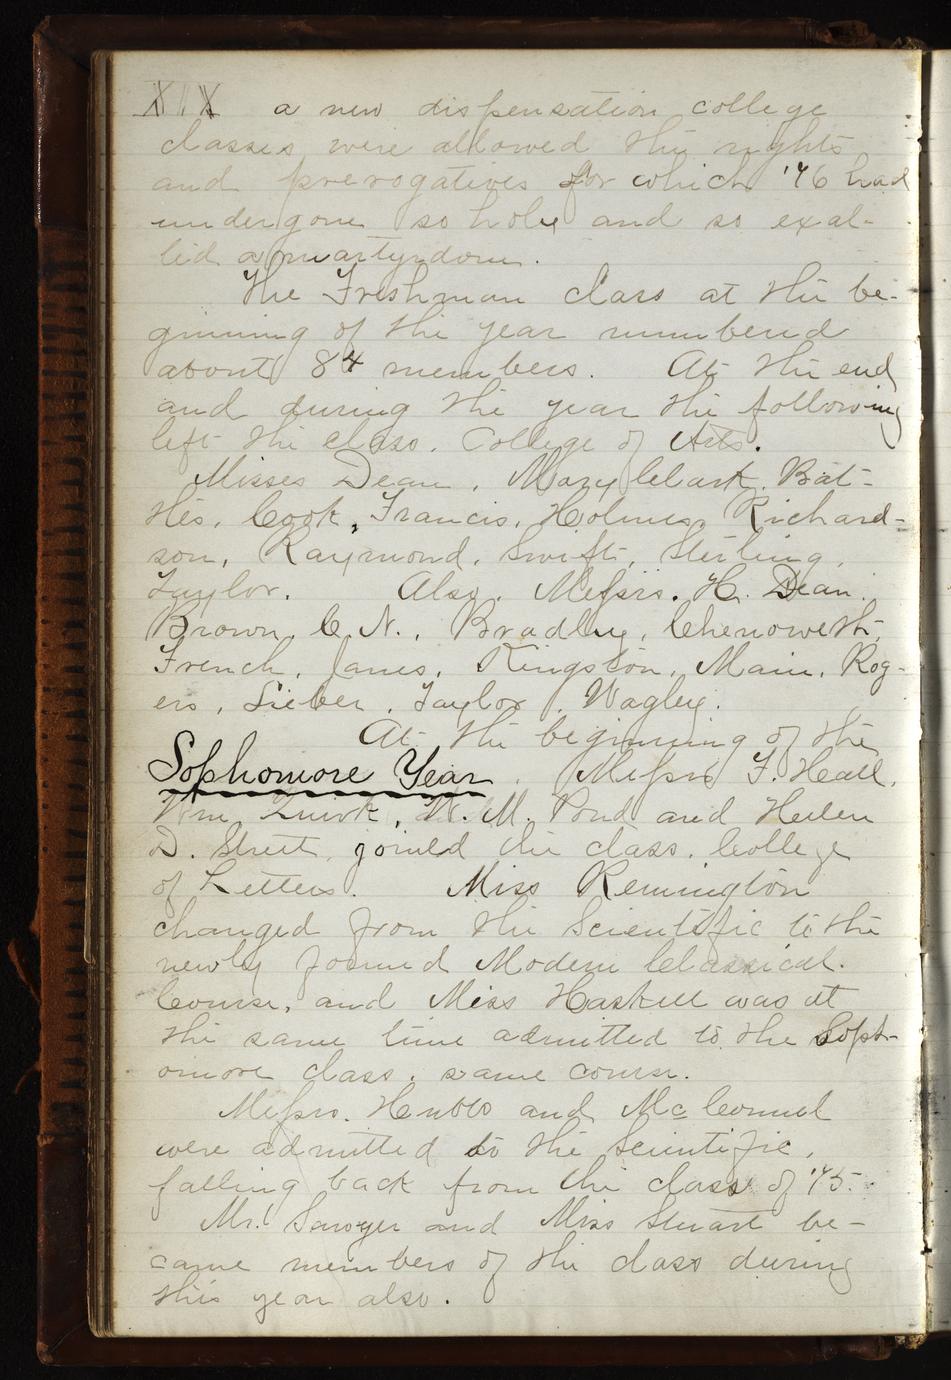 XIX a new dispensation college
classes were allowed the rights
and prerogatives for which '76 had
undergone so holy and so exal-
ted a martyrdom.
The Freshman class at the be-
ginning of the year numbered
about 84 members. At the end
and during the year the following
left the class. College of Arts.
Misses Dean, Mary Clark, Bat-
tis, Cook, Francis, Holmes, Richard-
son, Raymond, Swift, Sterling,
Taylor. Also, Messrs. H. Dean.
Brown, C. N., Bradley, Chenoweth,
French, James, Kingston, Main, Rog-
ers, Sieber, Taylor, Wagley.
At the beginning of the
Sophomore Year. Messrs F. Heall,
Wm Quirk, W. M. Pond and Helen
D. Street, joined the class. College
of Letters. Miss Remington
changed from the Scientific to the
newly formed Modern Classical.
Course, and Miss Haskell was at
the same time admitted to the Soph-
omore class, same course.
Messrs. Hubbs and Mc Connel
were admitted to the Scientific,
falling back from the class of '75.
Mr. Sawyer and Miss Stuart be-
came members of the class during
this year also.